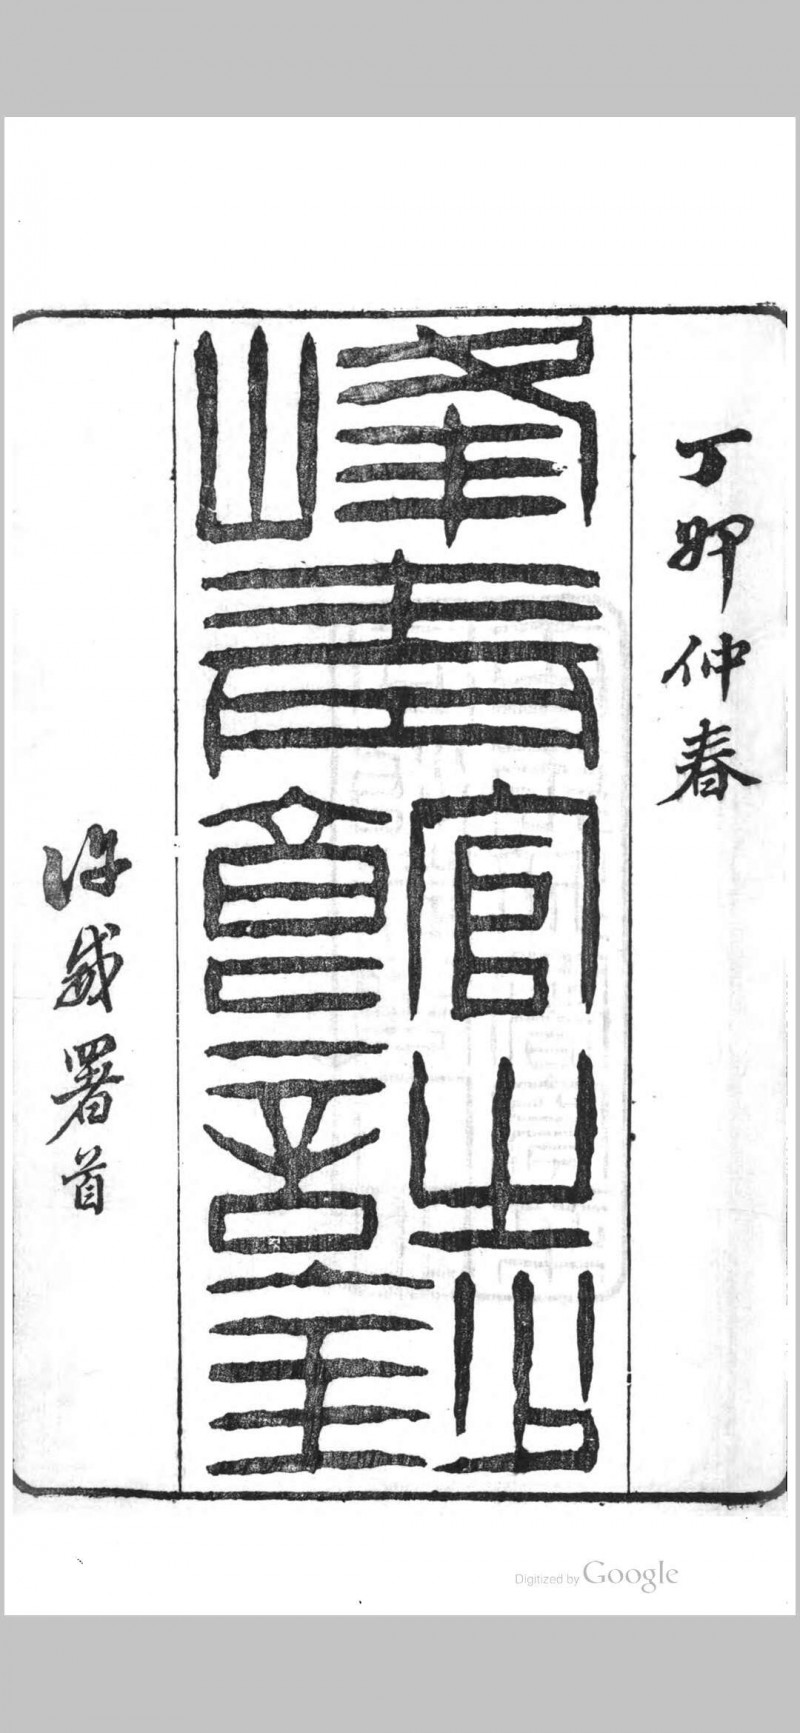 丁卯仲春
峰青館詩鈔
許威署首
Digitized by Google